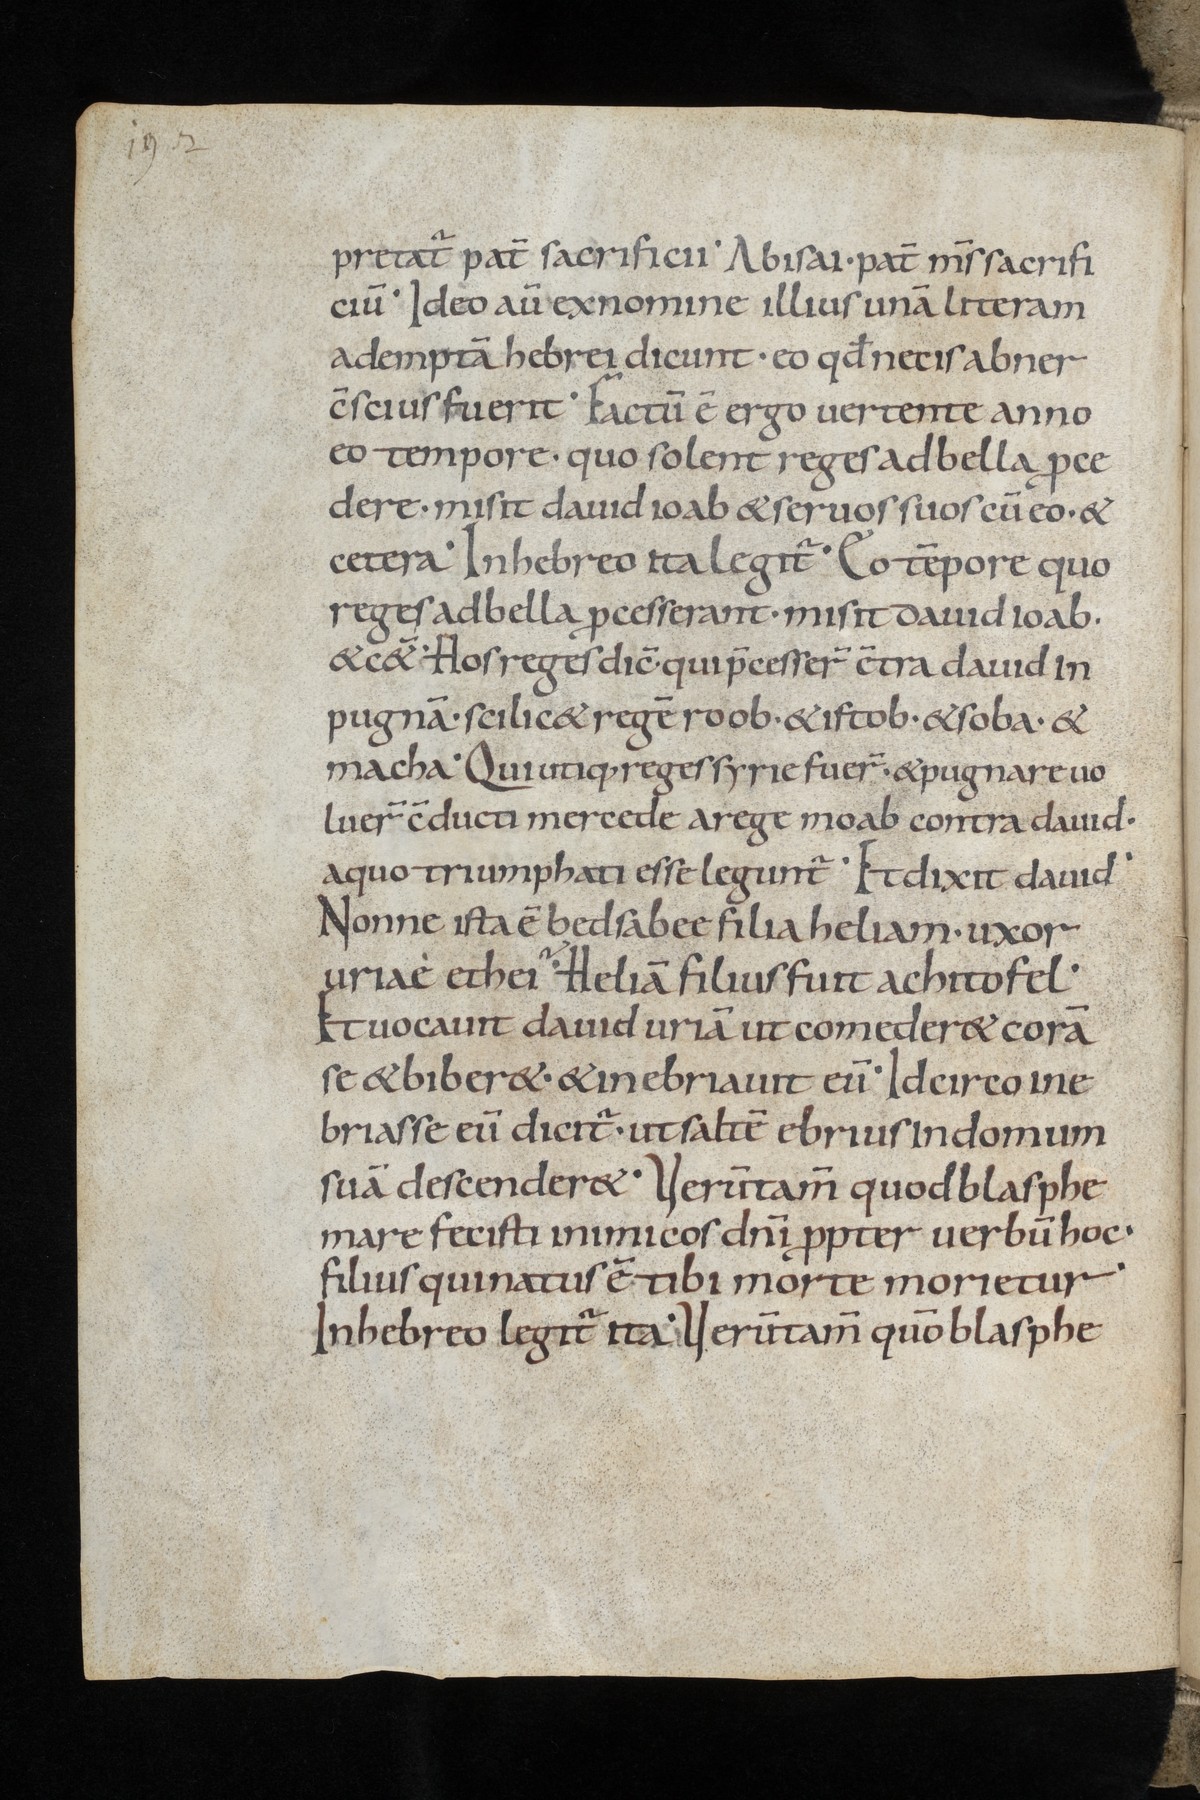 192
pretat̃ pat̃ sacrificii· Abisai· pat̃ m̃s sacrifi
ciū· Ideo aū ex nomine illius unā literam
ademptā hebrei dicunt· eo qđ necis abner
c̄scius fuerit· Factū ē ergo uertente anno
eo tempore· quo solent reges ad bella ꝓce
dere· misit dauid ioab & seruos suos cū eo· &
cetera· In hebreo ita legit̃· Eo tēpore quo
reges ad bella ꝓcesserant· misit dauid ioab·
& c&̃· Hos reges dic̄· qui p̄cesser̃ c̄tra dauid in
pugnā· scilic& regē roob· & istob· & soba· &
macha· Qui utiq, reges syrie fuer̃· & pugnare uo
luer̃ c̄ducti mercede a rege moab contra dauid·
a quo triumphati esse legunt̃· Et dixit dauid·
Nonne ista ē bedsabee filia heliam· uxor
uriae ethei·̃ Heliā filius fuit achitofel·
Et uocauit dauid uriā ut comeder& corā
se & biber&· & inebriauit eū· Idcirco ine
briasse eū dicit̃· ut saltē ebrius in domum
suā descender&· Uerūtam̄ quod blasphe
mare fecisti inimicos dn̄i ꝓpter uerbū hoc·
filius qui natus ē tibi morte morietur·
In hebreo legit̃ ita· Uerūtam̄ quō blasphe